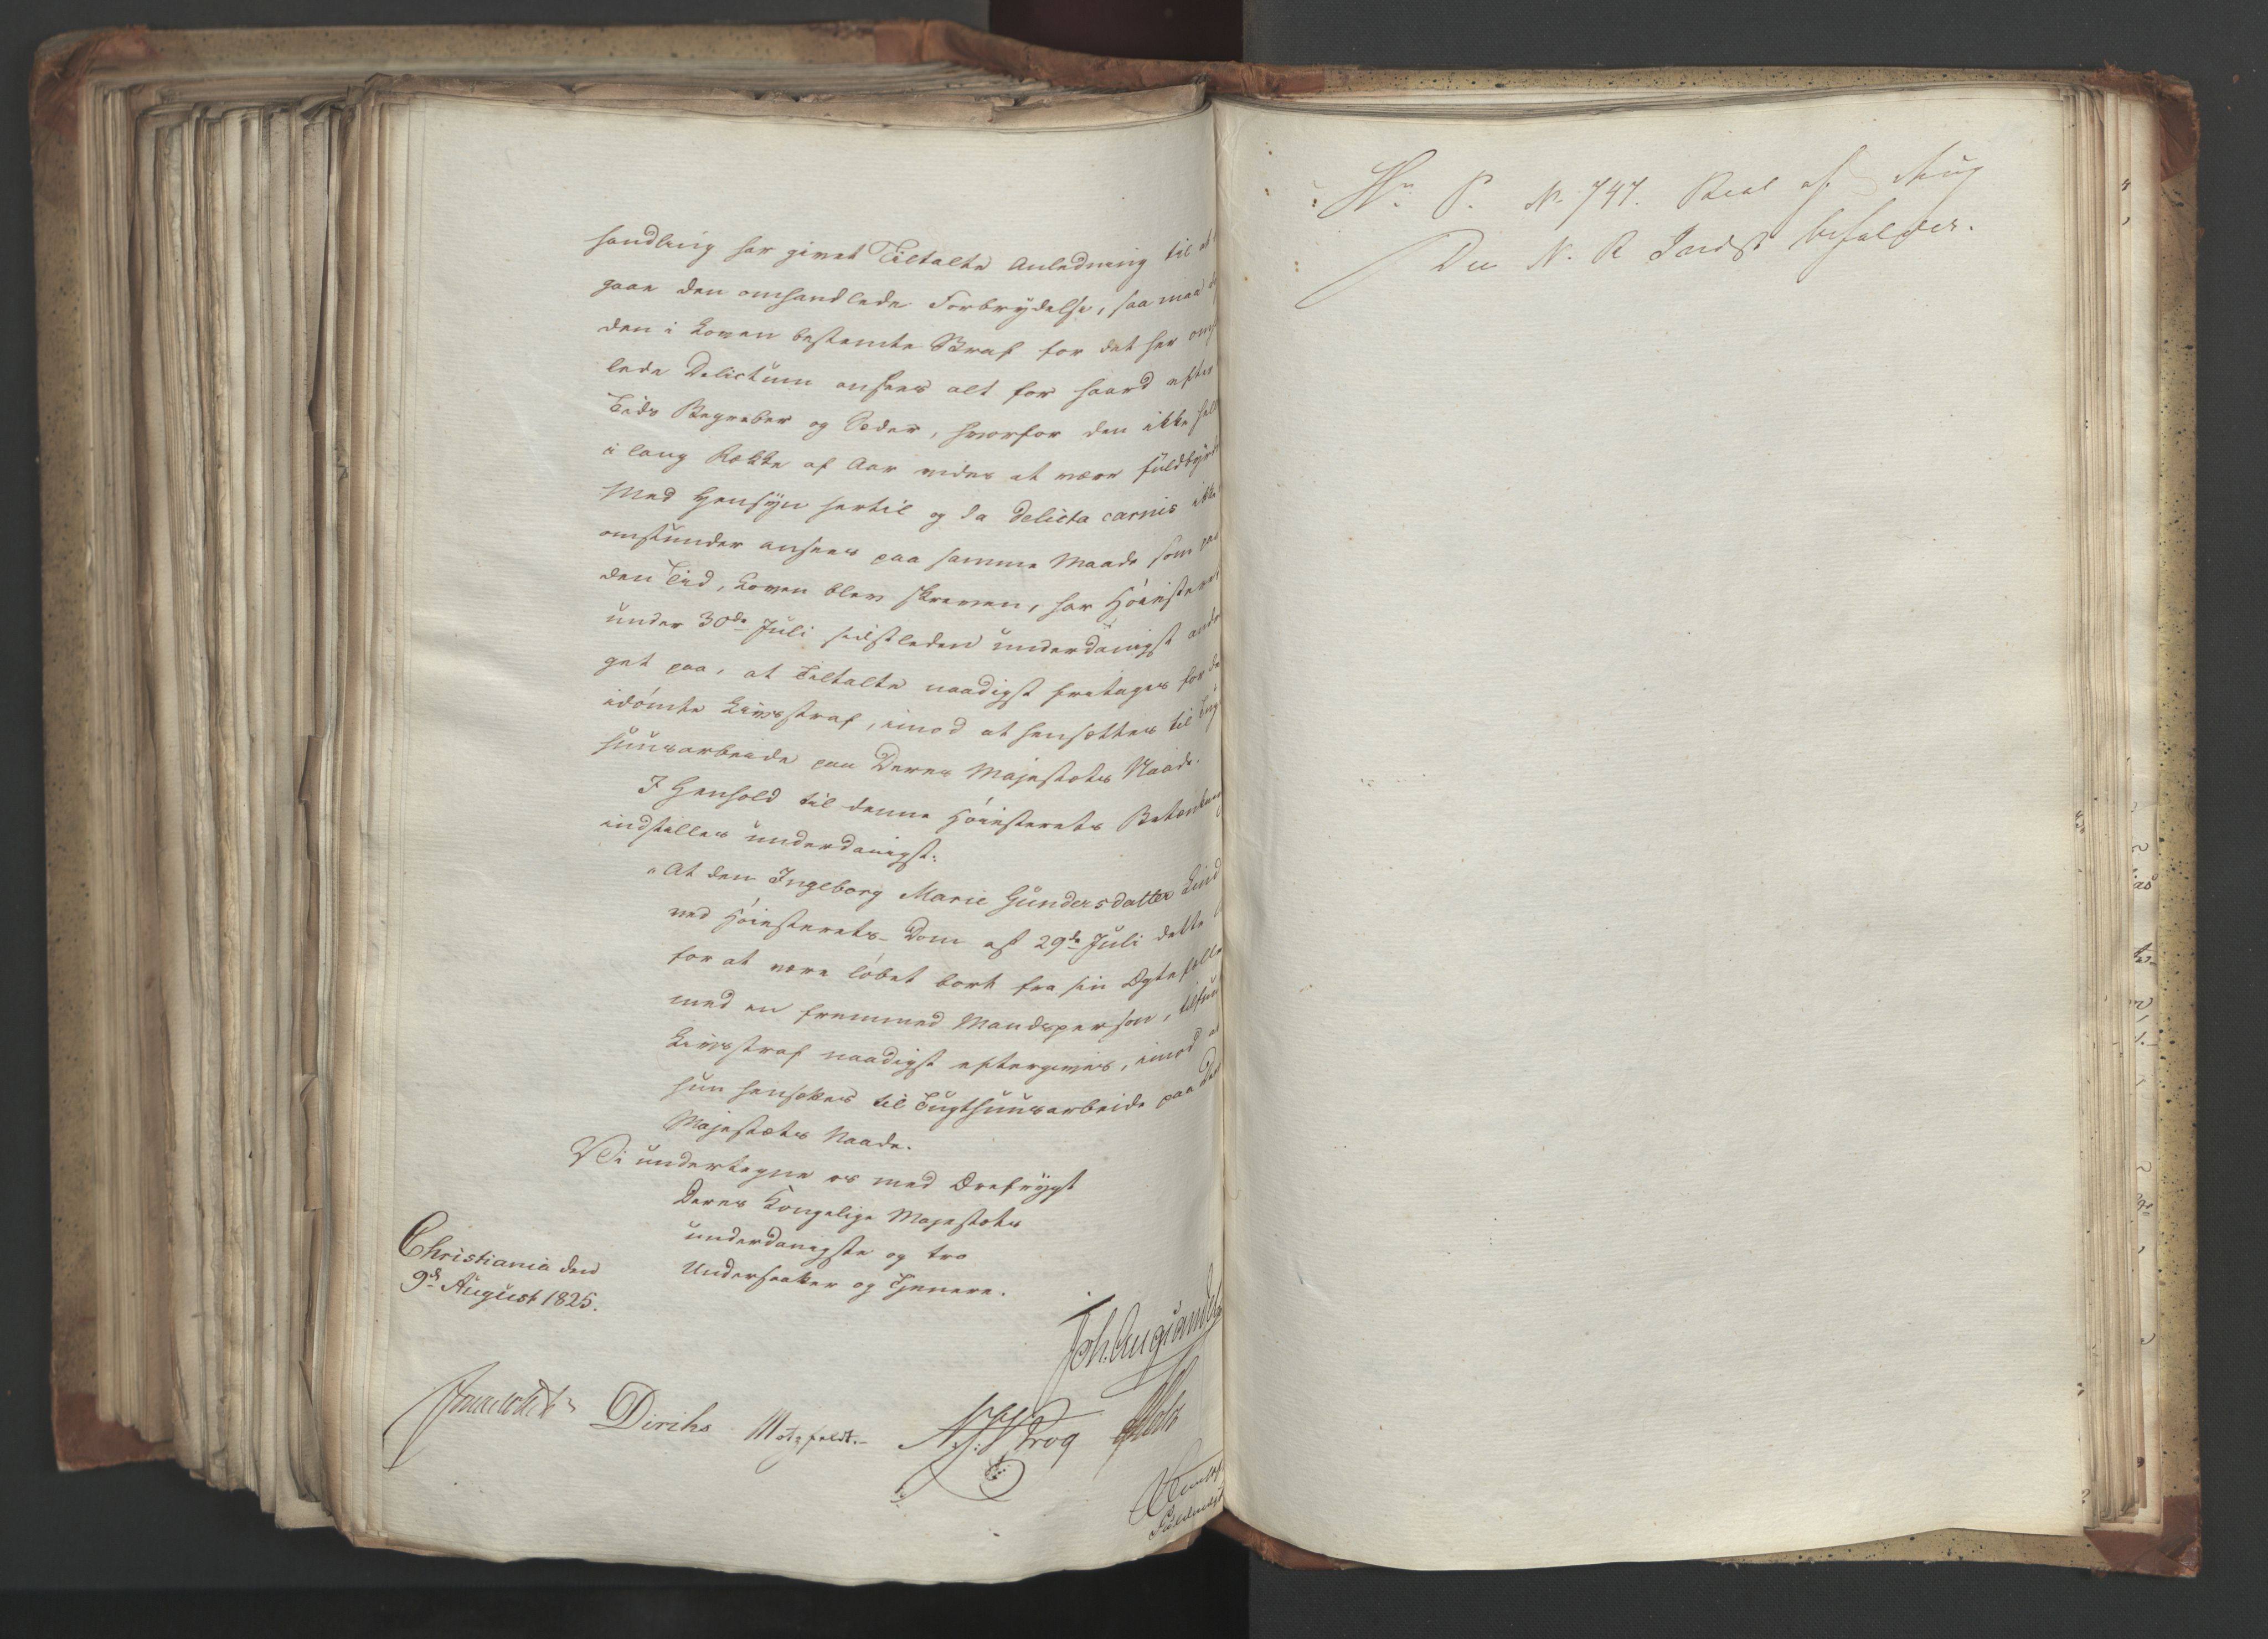 handling har givet Tiltalte Anledning til at
gaae den omhandlede Forbrydelse, saa maa
den i Loven bestemte Straf for det her om
lede Delictum ansees alt for haard efter
Tids Begreber og Sæder, hvorfor den ikke hel
i lang Række af Aar vides at være fuldbyrd
Med Hensyn hertil og da delicta carnis ikke
omstunder ansees paa samme Maade som paa
den Tid, Loven blev skreven, har Höiesteret
under 30de Juli sidstleden underdanigst andr
get paa, at Tiltalte naadigst fritages for de
idömte Livsstraf, imod at hensættes til Tugt
huusarbeide paa Deres Majestæts Naade.
I Henhold til denne Höiesterets Betænkn
indstilles underdanigst:
"At den Ingeborg Marie Gundersdatter Lind
ved Höiesterets-Dom af 29de Juli dette
for at være löbet bort fra sin Ægtefælle
med en fremmed Mandsperson, tilfun
Livsstraf naadigst eftergives, imod at
hun hensættes til Tugthuusarbeide paa Der
Majestæts Naade.
Vi undertegne os med Ærefrygt
Deres Kongelige Majestæts
underdanigste og tro
Undersaatter og Tjenere.
Christiania den
9de August 1825.
Joh. Aug. Sandels
Diriks Motzfeldt. Krog Holst
No 747. af Aug
Den N. R Indst bifaldes.